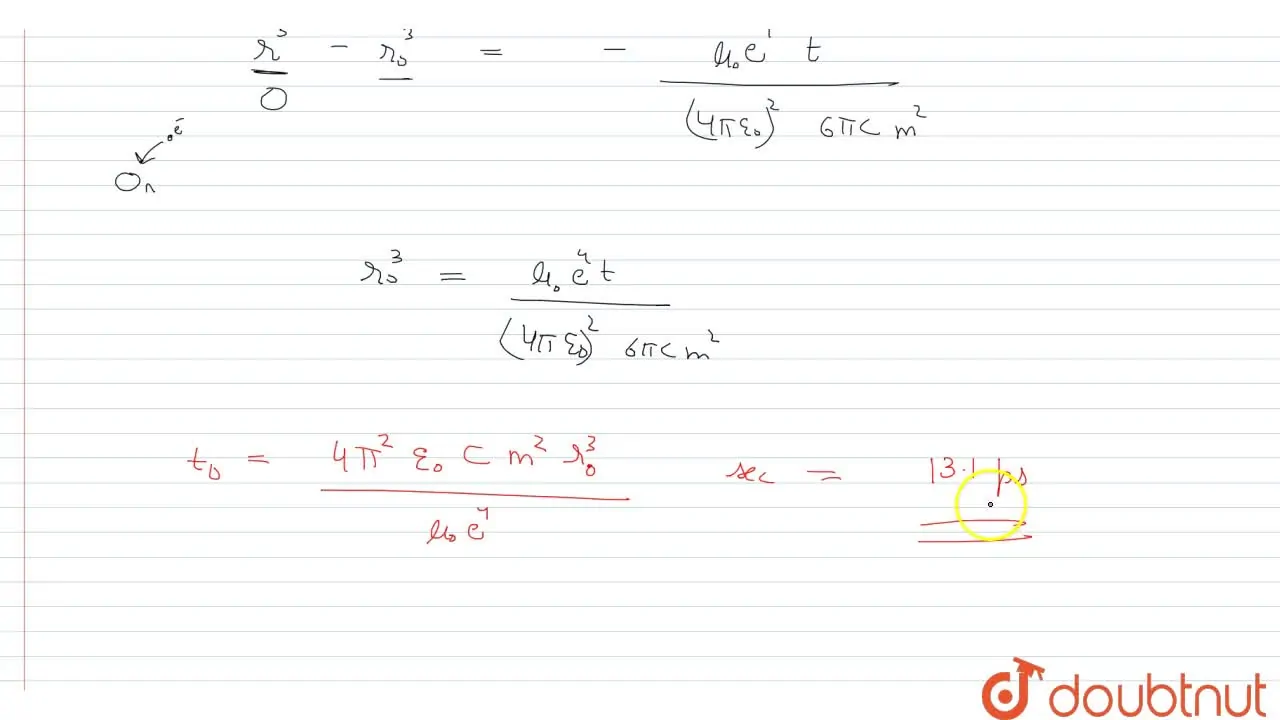 r³ - r₀³ = - μ₀e⁴ t / (4πε₀)² 6πc m²
0
e⁻
n
r₀³ = μ₀e⁴t / (4πε₀)² 6πc m²
t₀ = 4π² ε₀ c m² r₀³ / μ₀e⁴ sec = 13.1 ps
doubtnut